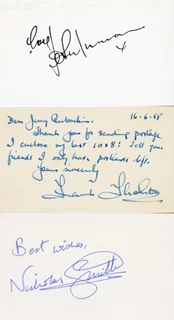 Love
John Inman
x
Dear Jenny
16-6-85
Thank you for sending postage
I enclose my last 10x8! Tell your
friends I only have postcards left.
Yours sincerely
Frank Thornton
Best wishes,
Nicholas Smith